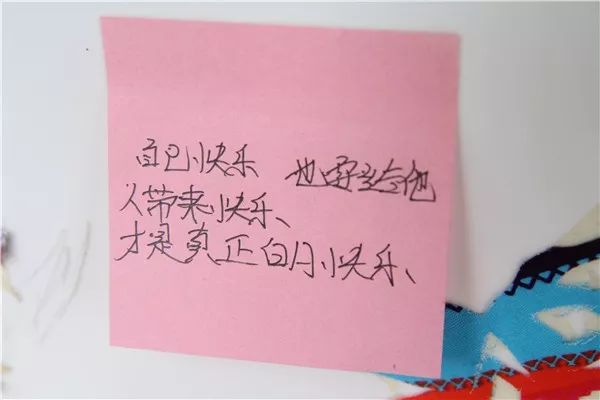 自己快乐 也要给他
人带来快乐、
才是真正白月快乐、